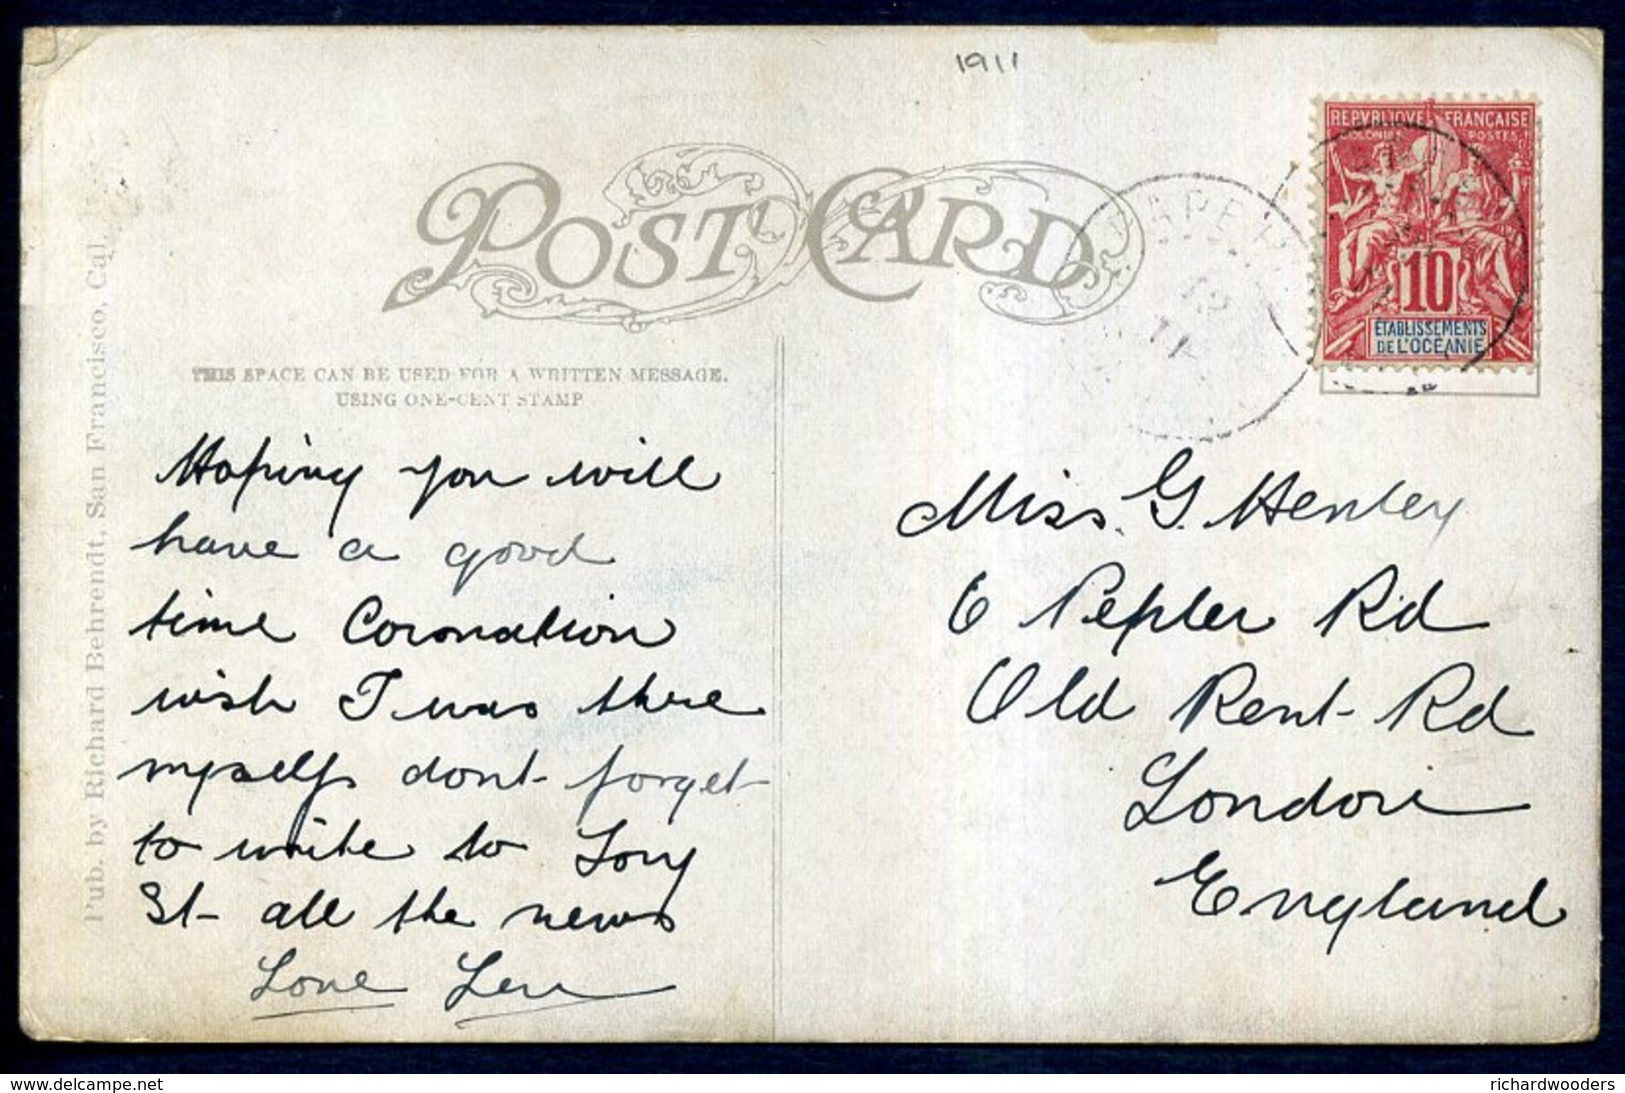 1911
REPVBLIQVE FRANÇAISE
COLONIES POSTES
10
ÉTABLISSEMENTS
DE L'OCÉANIE
POST CARD
PAPEE
12
11
THIS SPACE CAN BE USED FOR A WRITTEN MESSAGE.
USING ONE-CENT STAMP
Pub. by Richard Behrendt, San Francisco, Cal.
Hoping you will
have a good
time Coronation
wish I was there
myself dont forget
to write to Long
St all the news
Love Len
Miss. G. Henley
6 Pepler Rd
Old Kent Rd
London
England
delcampe.net
richardwooders